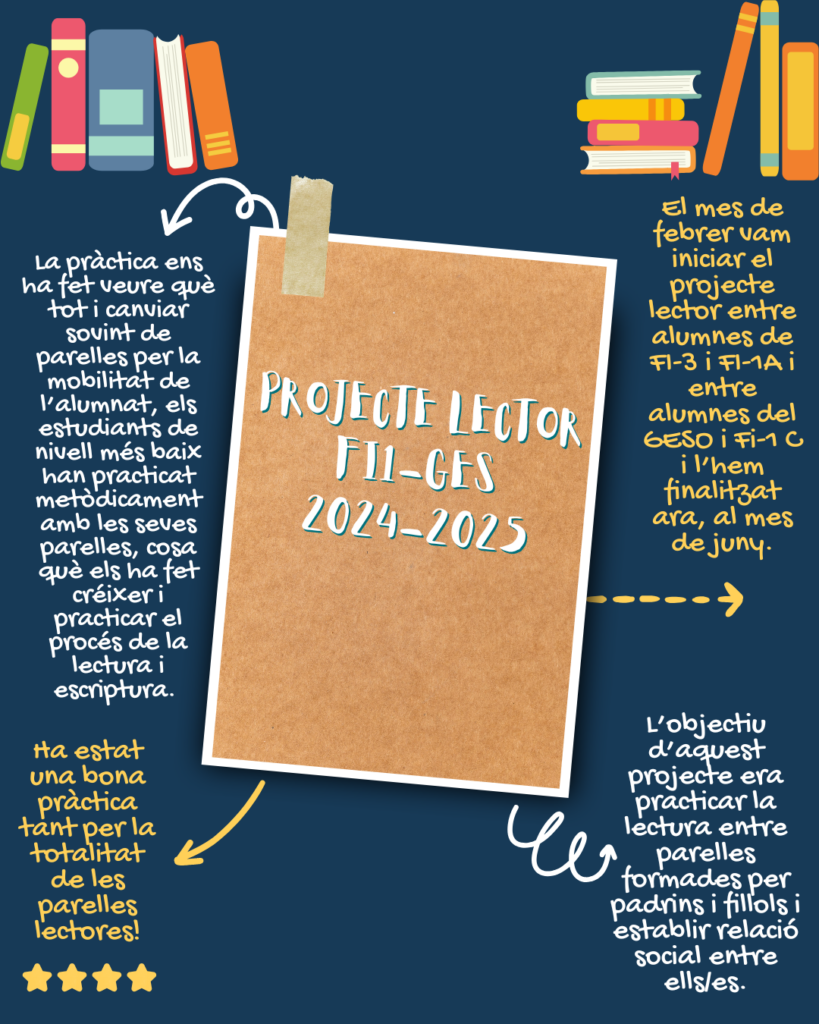 PROJECTE LECTOR
FI1-GES
2024-2025
El mes de
febrer vam
iniciar el
projecte
lector entre
alumnes de
FI-3 i FI-1A i
entre
alumnes del
GESO i Fi-1 C
i l'hem
finalitzat
ara, al mes
de juny.
L'objectiu
d'aquest
projecte era
practicar la
lectura entre
parelles
formades per
padrins i fillols i
establir relació
social entre
ells/es.
La pràctica ens
ha fet veure què
tot i canviar
sovint de
parelles per la
mobilitat de
l'alumnat, els
estudiants de
nivell més baix
han practicat
metòdicament
amb les seves
parelles, cosa
què els ha fet
créixer i
practicar el
procés de la
lectura i
escriptura.
Ha estat
una bona
pràctica
tant per la
totalitat
de les
parelles
lectores!